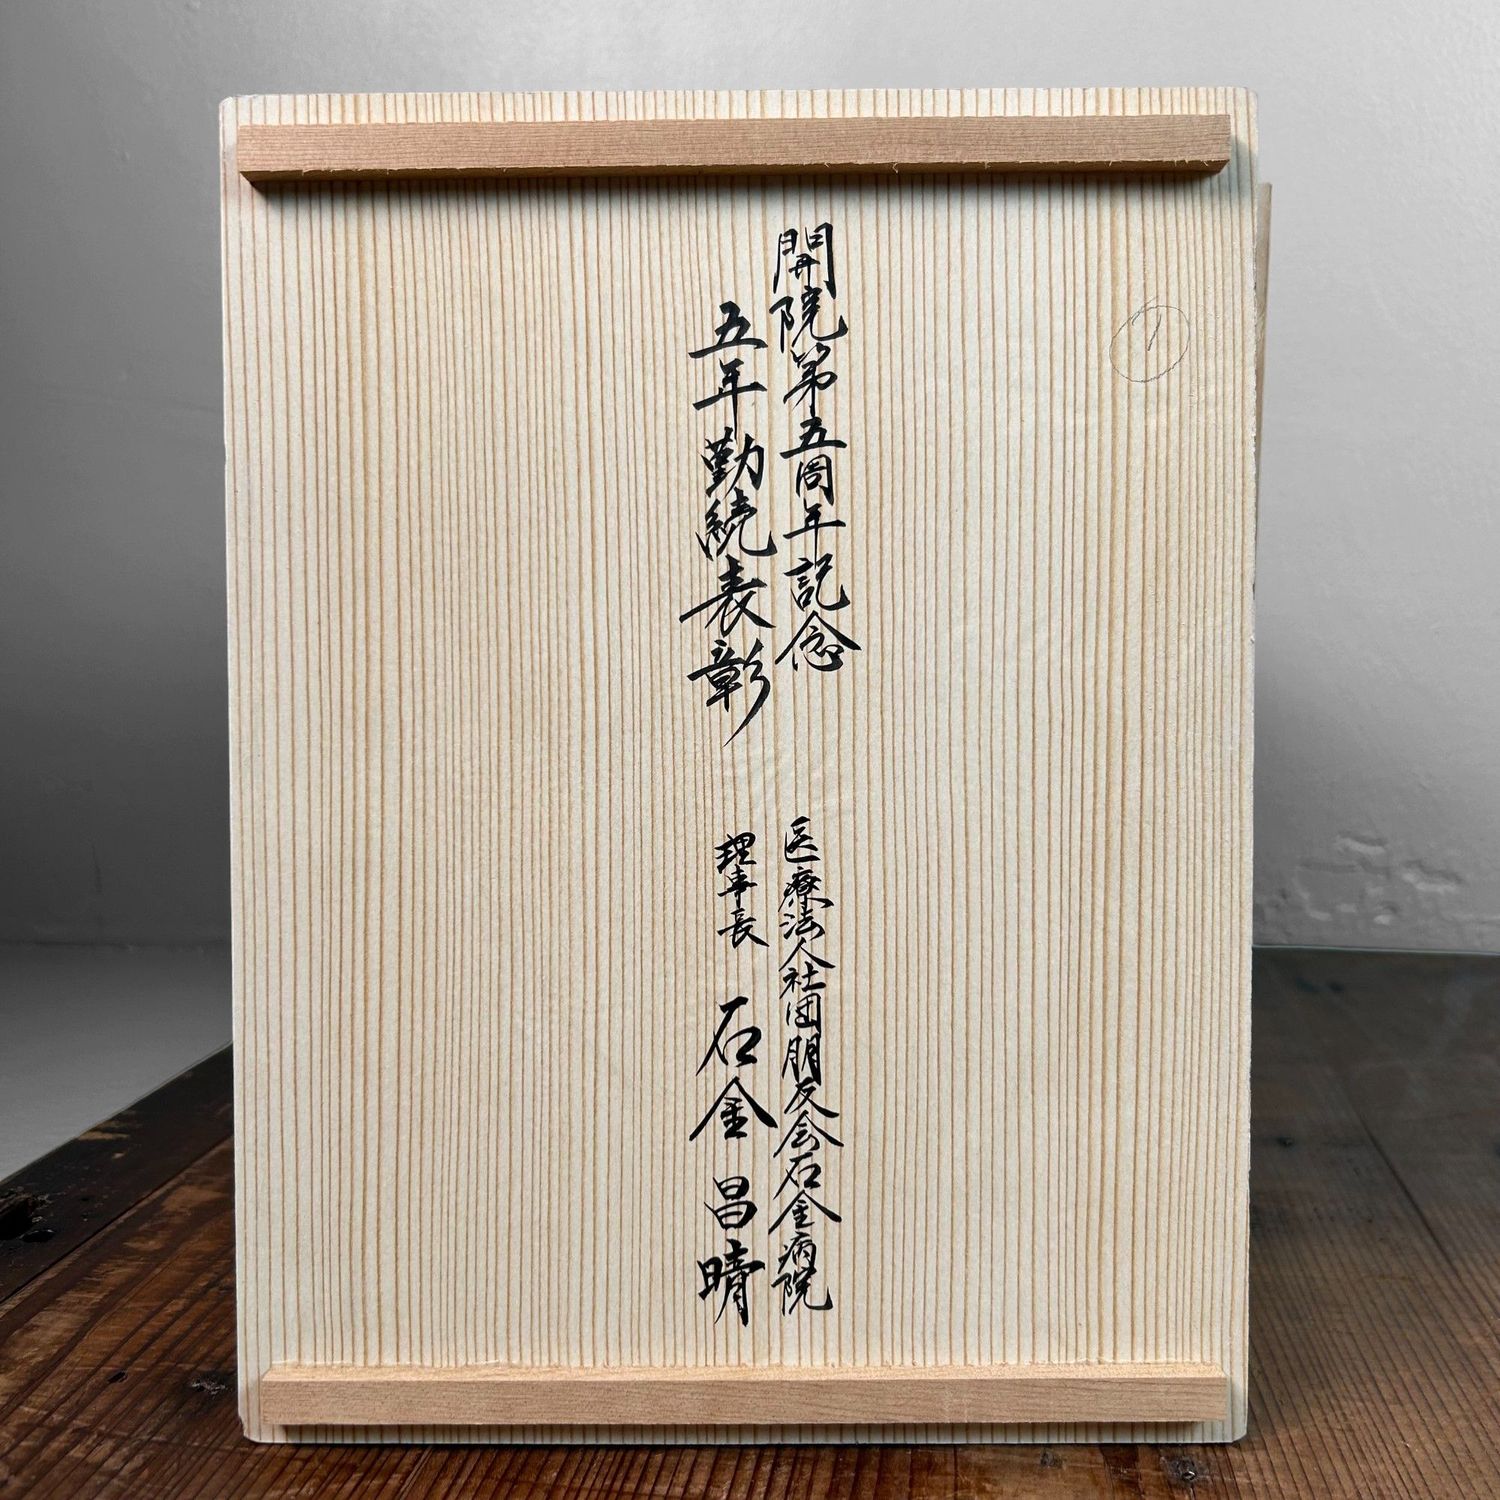 ①
開院第五周年記念
五年勤続表彰
医療法人社団朋友会石金病院
理事長 石金昌晴